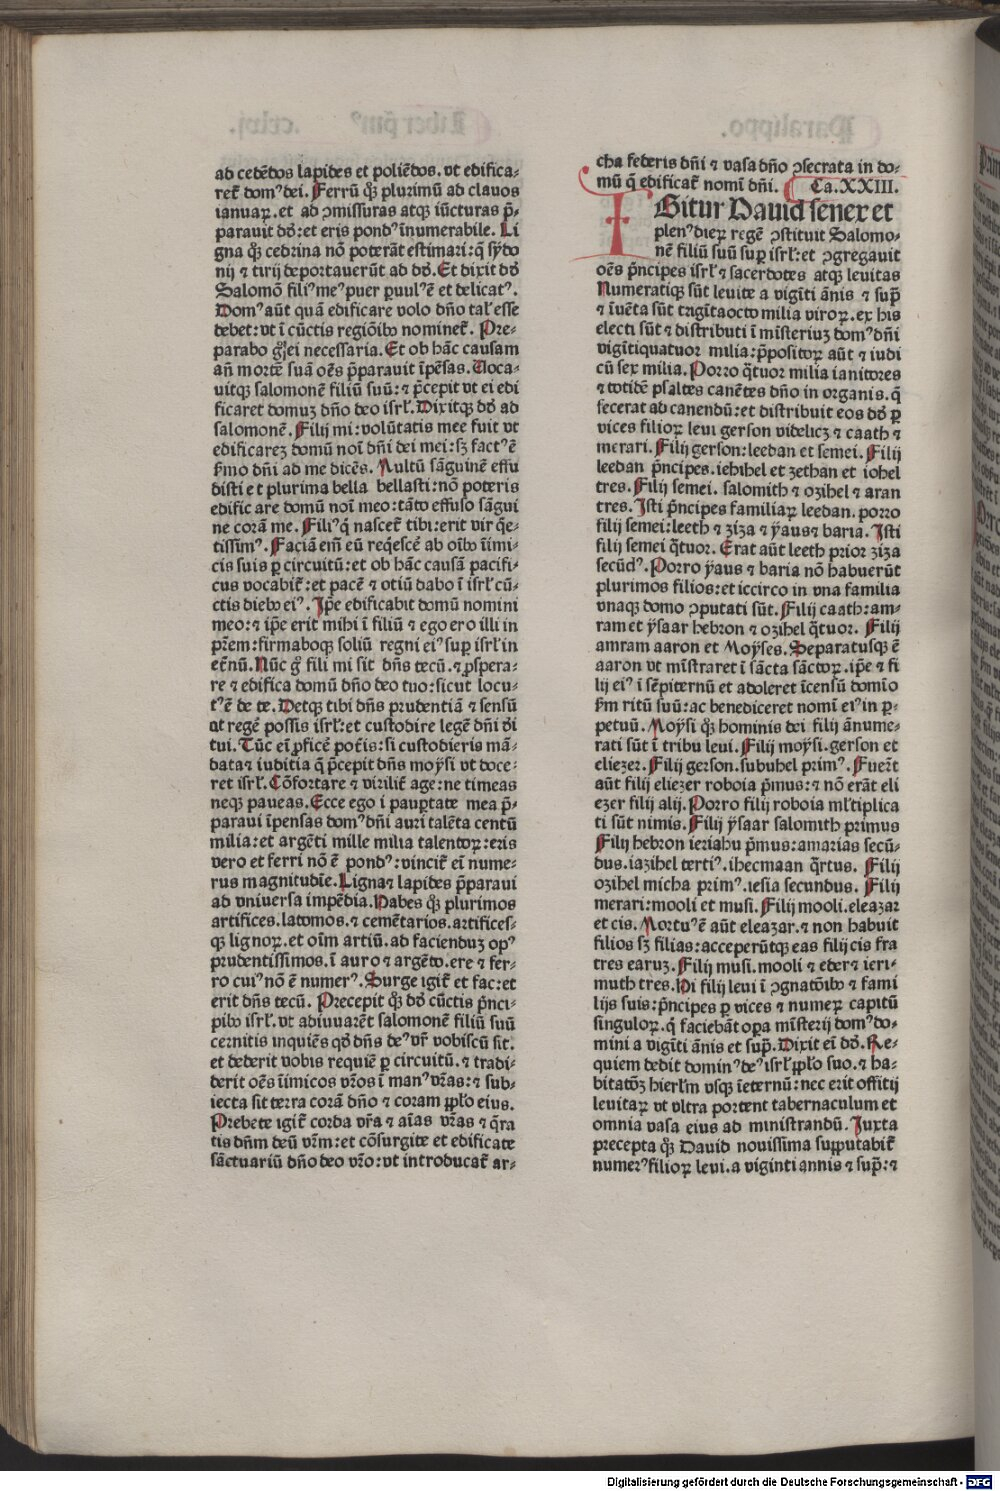 ad cedēdos lapides et poliēdos. vt edifica-
ret᷑ domꝰ dei. Ferrū qꝫ plurimū ad clauos
ianuaꝝ. et ad ꝯmissuras atqꝫ iūcturas p̄-
parauit dd̄: et eris pondꝰ īnumerabile. Li
gna qꝫ cedrina nō poterāt estimari: q̄ sydo
nij ⁊ tirij deportauerūt ad dd̄. Et dixit dd̄
Salomō filiꝰ meꝰ puer ꝑuulꝰ ē et delicatꝰ.
Domꝰ aūt quā edificare volo dño tal' esse
debet: vt ī cūctis regiōibꝰ nominet᷑. Pre-
parabo g̊ ei necessaria. Et ob hāc causam
añ mortē suā oēs p̄parauit īpēsas. Uoca-
uitqꝫ salomonē filiū suū: ⁊ p̄cepit vt ei edi
ficaret domuꝫ dño deo isrl'. Dixitqꝫ dd̄ ad
salomonē. Filij mi: volūtatis mee fuit vt
edificareꝫ domū noī dñi dei mei: sꝫ factꝰ ē
ẜmo dñi ad me dicēs. Multū sāguinē effu
disti et plurima bella bellasti: nō poteris
edificare domū noī meo: tāto effuso sāgui
ne corā me. Filiꝰ q̄ nascet᷑ tibi: erit vir q̇e-
tissimꝰ. Faciā em̄ eū req̇escē ab oībꝰ īimi-
cis suis ꝑ circuitū: et ob hāc causā pacifi-
cus vocabit᷑: et pacē ⁊ otiū dabo ī isrl' cū-
ctis diebꝰ eiꝰ. Ip̄e edificabit domū nomini
meo: ⁊ ip̄e erit mihi ī filiū ⁊ ego ero illi in
pr̄em: firmaboqꝫ soliū regni eiꝰ suꝑ isrl' in
et̄nū. Nūc g̊ fili mi sit dñs tecū. ⁊ ꝓspera-
re ⁊ edifica domū dño deo tuo: sicut locu-
tꝰ ē de te. Detqꝫ tibi dñs prudentiā ⁊ sensū
ut regē possis isrl': et custodire legē dñi di
tui. Tūc ei ꝓficē pot̄is: si custodieris mā-
data ⁊ iuditia q̄ p̄cepit dñs moysi vt doce-
ret isrl'. Cōfortare ⁊ virilit᷑ age: ne timeas
neqꝫ paueas. Ecce ego ī pauꝑtate mea p̄-
paraui īpensas domꝰ dñi auri talēta centū
milia: et argēti mille milia talentoꝝ: eris
vero et ferri nō ē pondꝰ: vincit᷑ ei nume-
rus magnitudīe. Ligna ⁊ lapides p̄paraui
ad vniuersa impēdia. Habes qꝫ plurimos
artifices. latomos. ⁊ cemētarios. artifices-
qꝫ lignoꝝ. et oīm artiū. ad facienduꝫ opꝰ
prudentissimos. ī auro ⁊ argēto. ere ⁊ fer-
ro cuiꝰ nō ē numerꝰ. Surge igit᷑ et fac: et
erit dñs tecū. Precepit qꝫ dd̄ cūctis p̄nci-
pibꝰ isrl'. vt adiuuarēt salomonē filiū suū
cernitis inquiēs qd̄ dñs deꝰ vr̄ vobiscū sit.
et dederit vobis requiē ꝑ circuitū. ⁊ tradi-
derit oēs īimicos vr̄os ī manꝰ vr̄as: ⁊ sub-
iecta sit terra corā dño ⁊ coram ꝓpl'o eius.
Prebete igit᷑ corda vr̄a ⁊ aīas vr̄as ⁊ q̄ra
tis dñm deū vr̄m: et cōsurgite et edificate
sāctuariū dño deo vr̄o: vt introducat᷑ ar-
cha federis dñi ⁊ vasa dño ꝯsecrata in do-
mū q̄ edificat᷑ nomī dñi. Ca. XXIII.
IGitur Dauid senex et
plenꝰ dieꝝ regē ꝯstituit Salomo-
nē filiū suū suꝑ isrl': et ꝯgregauit
oēs p̄ncipes isrl' ⁊ sacerdotes atqꝫ leuitas
Numeratiqꝫ sūt leuite a vigīti ānis ⁊ supͣ
⁊ īuēta sūt trigītaocto milia viroꝝ. ex his
electi sūt ⁊ distributi ī mīsteriuꝫ domꝰ dñi
vigītiquatuor milia: p̄positoꝝ aūt ⁊ iudi
cū sex milia. Porro q̄tuor milia ianitores
⁊ totidē psaltes canētes dño in organis. q̄
fecerat ad canendū: et distribuit eos dd̄ ꝑ
vices filioꝝ leui gerson videlicꝫ ⁊ caath ⁊
merari. Filij gerson: leedan et semei. Filij
leedan p̄ncipes. iehihel et zethan et iohel
tres. Filij semei. salomith ⁊ ozihel ⁊ aran
tres. Isti p̄ncipes familiaꝝ leedan. porro
filij semei: leeth ⁊ ziza ⁊ yaus ⁊ baria. Isti
filij semei q̄tuor. Erat aūt leeth prior ziza
secūdꝰ. Porro yaus ⁊ baria nō habuerūt
plurimos filios: et iccirco in vna familia
vnaqꝫ domo ꝯputati sūt. Filij caath: am-
ram et ysaar hebron ⁊ ozihel q̄tuor. Filij
amram aaron et Moyses. Separatusqꝫ ē
aaron vt mīstraret ī sācta sāctoꝝ. ip̄e ⁊ fi
lij eiꝰ ī sēpiternū et adoleret īcensū domīo
ẜm ritū suū: ac benediceret nomī eiꝰ in ꝑ-
petuū. Moysi qꝫ hominis dei filij ānume-
rati sūt ī tribu leui. Filij moysi. gerson et
eliezer. Filij gerson. subuhel primꝰ. Fuer̄t
aūt filij eliezer roboia p̄mus: ⁊ nō erāt eli
ezer filij alij. Porro filij roboia ml'tiplica
ti sūt nimis. Filij ysaar salomith primus
Filij hebron ieriahu p̄mus: amarias secū-
dus. iazihel tertiꝰ. ihecmaan q̄rtus. Filij
ozihel micha primꝰ. iesia secundus. Filij
merari: mooli et musi. Filij mooli. eleazar
et cis. Mortuꝰ ē aūt eleazar. ⁊ non habuit
filios sꝫ filias: acceperūtqꝫ eas filij cis fra
tres earuꝫ. Filij musi. mooli ⁊ eder ⁊ ieri-
muth tres. Hi filij leui ī ꝯgnatōibꝰ ⁊ fami
lijs suis: p̄ncipes ꝑ vices ⁊ numeꝝ capitū
singuloꝝ. q̄ faciebāt oꝑa mīsterij domꝰ do-
mini a vigīti ānis et supͣ. Dixit ei dd̄. Re-
quiem dedit dominꝰ deꝰ isrl' ꝓpl'o suo. ⁊ ha-
bitatōꝫ hierl'm vsqꝫ īeternū: nec erit offitij
leuitaꝝ vt vltra portent tabernaculum et
omnia vasa eius ad ministrandū. Juxta
precepta qꝫ Dauid nouissima supputabit᷑
numerꝰ filioꝝ leui. a viginti annis ⁊ supͣ: ⁊
Digitalisierung gefördert durch die Deutsche Forschungsgemeinschaft - DFG